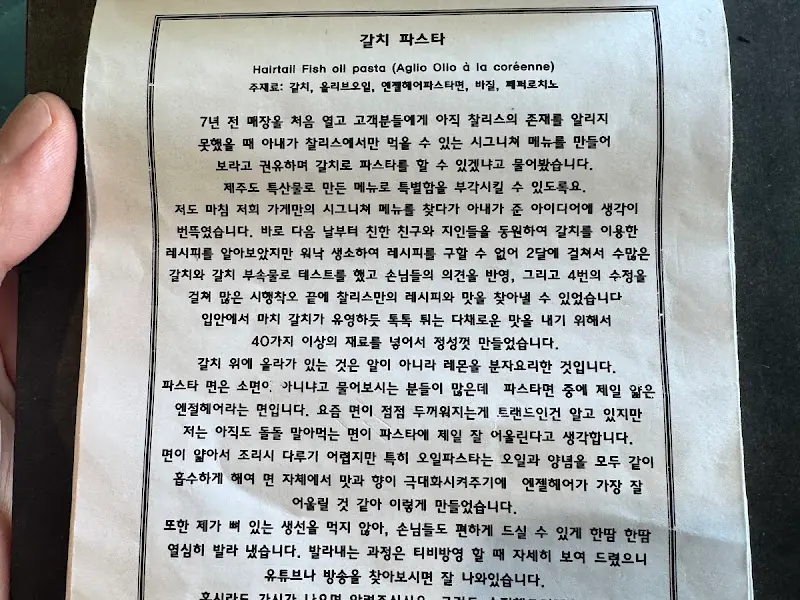 갈치 파스타
Hairtail Fish oil pasta (Aglio Olio à la coréenne)
주재료: 갈치, 올리브오일, 엔젤헤어파스타면, 바질, 페페로치노
7년 전 매장을 처음 열고 고객분들에게 아직 찰리스의 존재를 알리지
못했을 때 아내가 찰리스에서만 먹을 수 있는 시그니쳐 메뉴를 만들어
보라고 권유하며 갈치로 파스타를 할 수 있겠냐고 물어봤습니다.
제주도 특산물로 만든 메뉴로 특별함을 부각시킬 수 있도록요.
저도 마침 저희 가게만의 시그니쳐 메뉴를 찾다가 아내가 준 아이디어에 생각이
번뜩였습니다. 바로 다음 날부터 친한 친구와 지인들을 동원하여 갈치를 이용한
레시피를 알아보았지만 워낙 생소하여 레시피를 구할 수 없어 2달에 걸쳐서 수많은
갈치와 갈치 부속물로 테스트를 했고 손님들의 의견을 반영, 그리고 4번의 수정을
걸쳐 많은 시행착오 끝에 찰리스만의 레시피와 맛을 찾아낼 수 있었습니다
입안에서 마치 갈치가 유영하듯 톡톡 튀는 다채로운 맛을 내기 위해서
40가지 이상의 재료를 넣어서 정성껏 만들었습니다.
갈치 위에 올라가 있는 것은 알이 아니라 레몬을 분자요리한 것입니다.
파스타 면은 소면이 아니냐고 물어보시는 분들이 많은데 파스타면 중에 제일 얇은
엔젤헤어라는 면입니다. 요즘 면이 점점 두꺼워지는게 트랜드인건 알고 있지만
저는 아직도 돌돌 말아먹는 면이 파스타에 제일 잘 어울린다고 생각합니다.
면이 얇아서 조리시 다루기 어렵지만 특히 오일파스타는 오일과 양념을 모두 같이
흡수하게 해여 면 자체에서 맛과 향이 극대화시켜주기에 엔젤헤어가 가장 잘
어울릴 것 같아 이렇게 만들었습니다.
또한 제가 뼈 있는 생선을 먹지 않아, 손님들도 편하게 드실 수 있게 한땀 한땀
열심히 발라 냈습니다. 발라내는 과정은 티비방영 할 때 자세히 보여 드렸으니
유튜브나 방송을 찾아보시면 잘 나와있습니다.
혹시라도 가시가 나오면